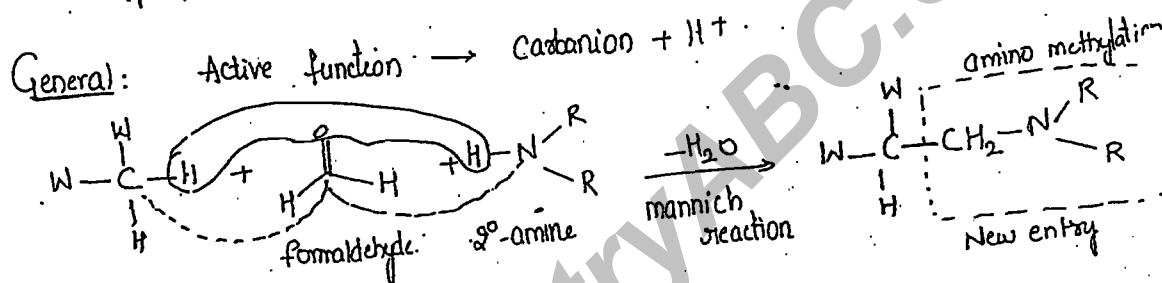 General: Active function → Carbanion + H+
amino methylation
W W—C—H H + O H H + H—N R R —H2O mannich reaction W W—C—CH2—N R R H
formaldehyde. 2°-amine
New entry
tryABC.c